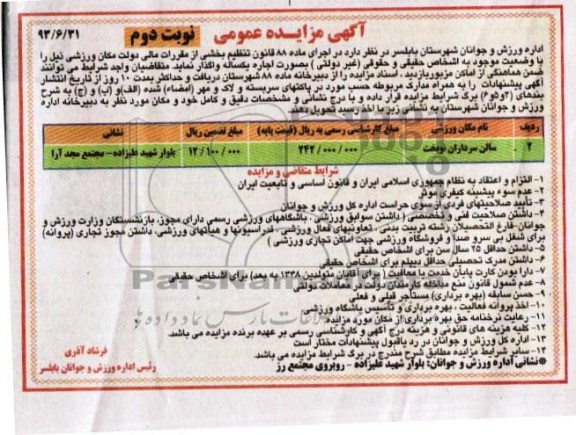 آگهی مزایده عمومی
نوبت دوم
۹۳/۶/۳۱
اداره ورزش و جوانان شهرستان بابلسر در نظر دارد در اجرای ماده ۸۸ قانون تنظیم بخشی از مقررات مالی دولت مکان ورزشی ذیل را
با وضعیت موجود به اشخاص حقیقی و حقوقی (غیر دولتی) بصورت اجاره یکساله واگذار نماید. متقاضیان واجد شرایط می توانند
ضمن هماهنگی از اماکن مزبور بازدید. اسناد مزایده را از دبیرخانه ماده ۸۸ شهرستان دریافت و حداکثر بمدت ۱۰ روز از تاریخ انتشار
آگهی پیشنهادات را به همراه مدارک مربوطه حسب مورد در پاکتهای سربسته و لاک و مهر (امضاء) شده (الف) و (ب) و (ج) به شرح
بندهای (۳و۵و۶) برگ شرایط مزایده قرار داده و با درج نشانی و مشخصات دقیق و کامل خود و مکان مورد نظر به دبیرخانه اداره
ورزش و جوانان شهرستان به نشانی زیر با اخذ رسید تحویل دهند.
ردیف نام مکان ورزشی مبلغ کارشناسی رسمی به ریال (قیمت پایه) مبلغ تضمین ریال نشانی
۲ سالن سرداران نوبخت ۲۴۲/۰۰۰/۰۰۰ ۱۲/۱۰۰/۰۰۰ بلوار شهید علیزاده – مجتمع مجد آرا
شرایط متقاضی و مزایده
۱- التزام و اعتقاد به نظام جمهوری اسلامی ایران و قانون اساسی و تابعیت ایران
۲- عدم سوء پیشینه کیفری موثر
۳- تأیید صلاحیتهای فردی از سوی حراست اداره کل ورزش و جوانان
۴- داشتن صلاحیت فنی و تخصصی (داشتن سوابق ورزشی، باشگاههای ورزشی رسمی دارای مجوز، بازنشستگان وزارت ورزش و
جوانان-فارغ التحصیلان رشته تربیت بدنی، تعاونیهای فعال ورزشی، فدراسیونها و هیأتهای ورزشی، داشتن مجوز تجاری (پروانه)
برای شغل بی سرو صدا و فروشگاه ورزشی جهت اماکن تجاری ورزشی)
۵- داشتن حداقل ۲۵ سال سن برای اشخاص حقیقی
۶- داشتن مدرک تحصیلی حداقل دیپلم برای اشخاص حقیقی
۷- دارا بودن کارت پایان خدمت یا معافیت (برای آقایان متولدین ۱۳۳۸ به بعد) برای اشخاص حقیقی
۸- عدم شمول قانون منع مداخله کارمندان دولت در معاملات دولتی
۹- حسن سابقه (بهره برداری) مستأجر قبلی و فعلی
۱۰- اخذ پروانه فعالیت، بهره برداری و تأسیس باشگاه ورزشی
۱۱- رعایت نرخنامه حق بهره برداری از مکان مورد مزایده
۱۲- کلیه هزینه های قانونی و هزینه درج آگهی و کارشناسی رسمی بر عهده برنده مزایده می باشد.
۱۳- اداره کل ورزش و جوانان در رد یا قبول پیشنهادات مختار است
۱۴- سایر شرایط مزایده مطابق شرح مندرج در برگ شرایط مزایده می باشد.
*نشانی اداره ورزش و جوانان: بلوار شهید علیزاده – روبروی مجتمع رز
فرشاد آذری
رئیس اداره ورزش و جوانان بابلسر